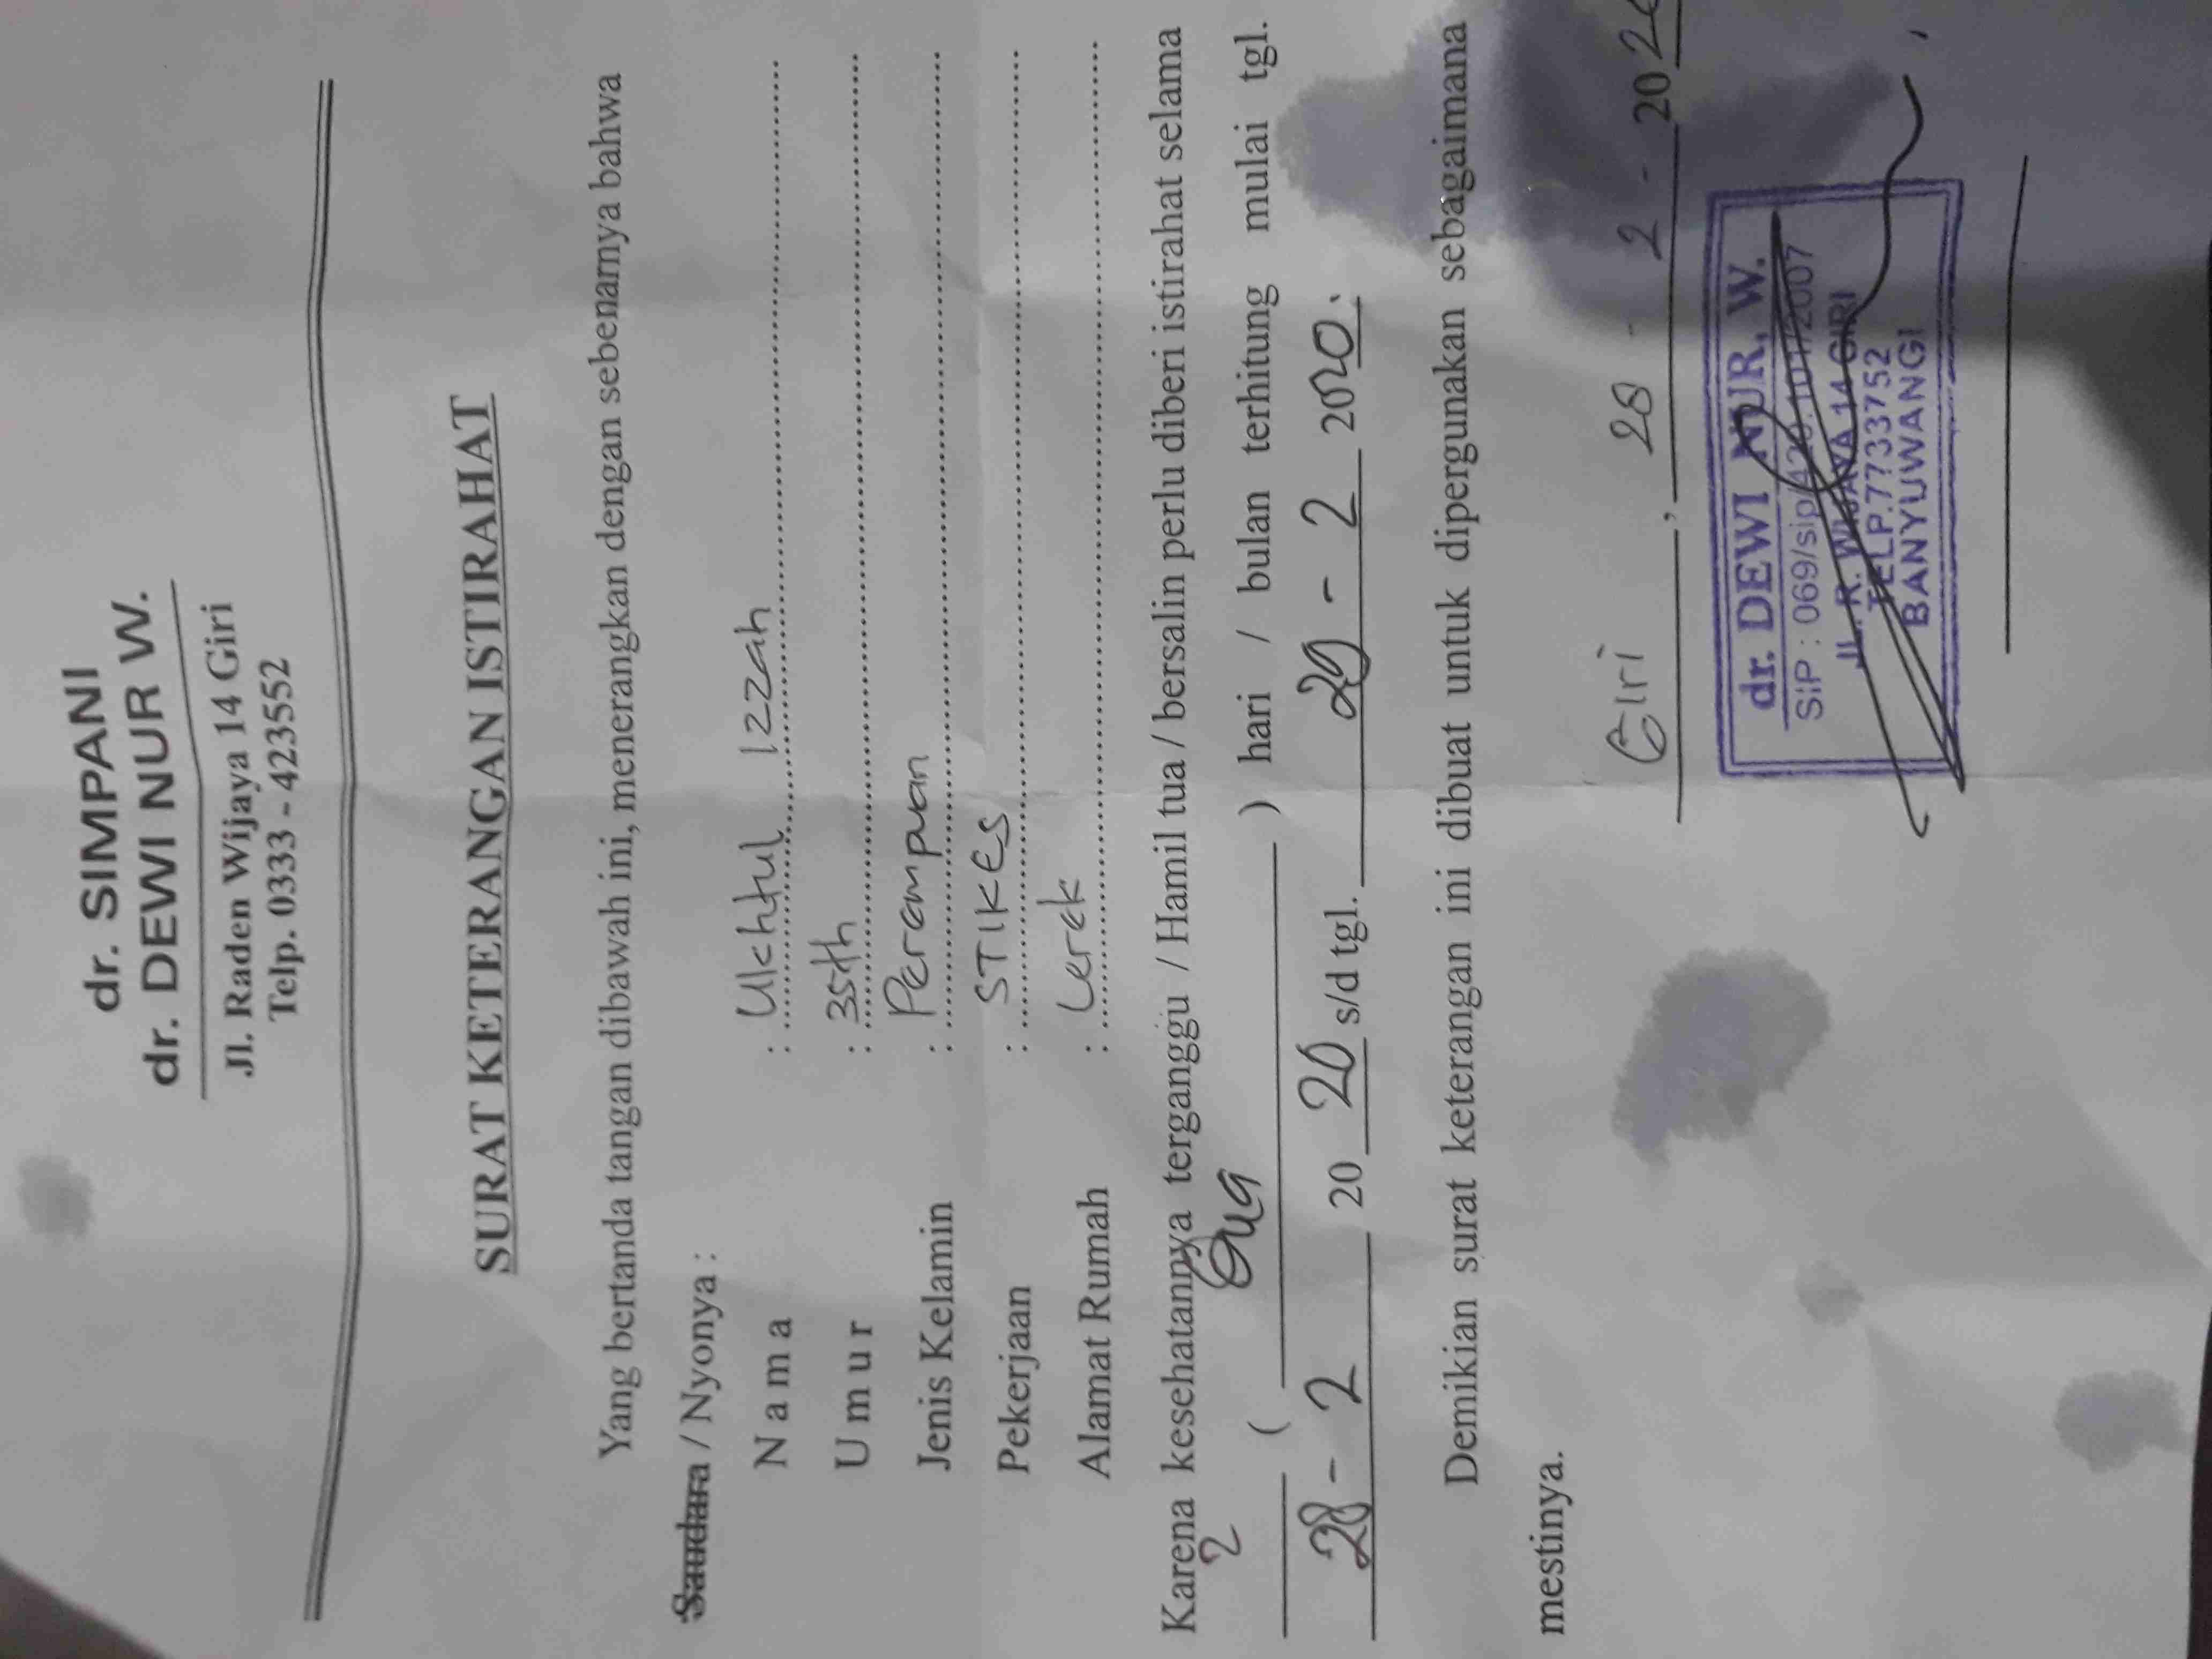 dr. SIMPANI
dr. DEWI NUR W.
Jl. Raden Wijaya 14 Giri
Telp. 0333 - 423552
SURAT KETERANGAN ISTIRAHAT
Yang bertanda tangan dibawah ini, menerangkan dengan sebenarnya bahwa
Saudara / Nyonya :
Nama : Ukhtul Izzah
Umur : 35th
Jenis Kelamin : Perempuan
Pekerjaan : STIKES
Alamat Rumah : Lerek
Karena kesehatannya terganggu / Hamil tua / bersalin perlu diberi istirahat selama
2 ( Dua ) hari / bulan terhitung mulai tgl.
28 - 2 2020 s/d tgl. 29 - 2 2020.
Demikian surat keterangan ini dibuat untuk dipergunakan sebagaimana
mestinya.
Giri , 28 - 2 - 2020
dr. DEWI NUR, W.
SiP : 069/sip/420.101/2007
JL. R. WIJAYA 14 GIRI
TELP.7733752
BANYUWANGI